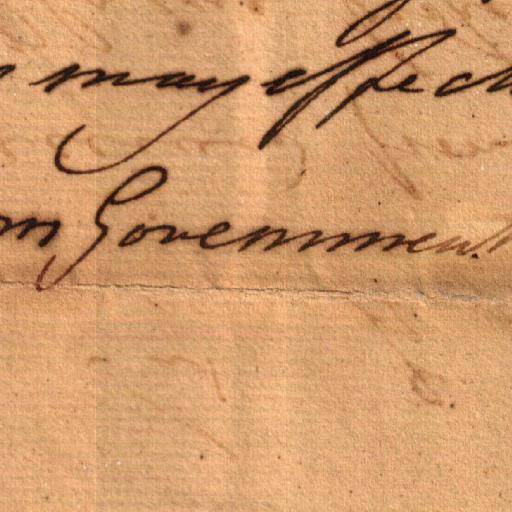 may effect
Government